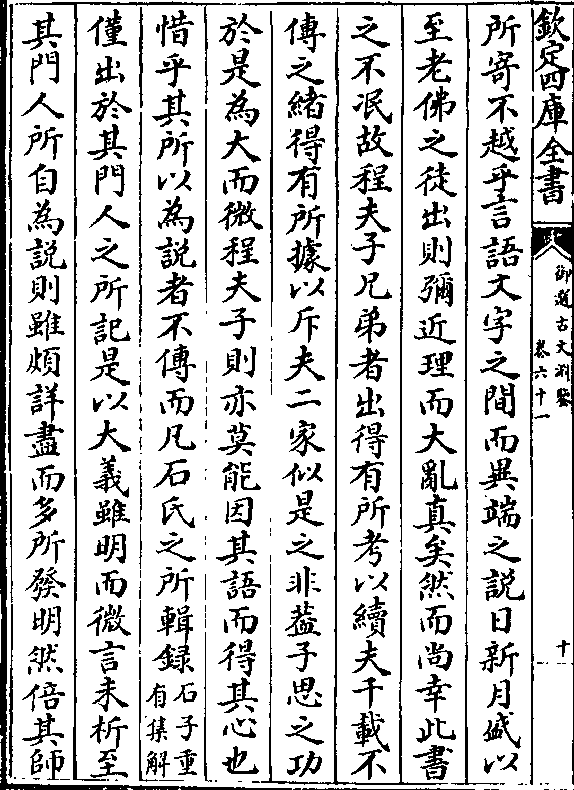 欽定四庫全書
御選古文淵鑒
卷六十一
十
所寄不越乎言語文字之間而異端之說日新月盛以
至老佛之徒出則彌近理而大亂真矣然而尚幸此書
之不泯故程夫子兄弟者出得有所考以續夫千載不
傳之緒得有所據以斥夫二家似是之非葢子思之功
於是為大而微程夫子則亦莫能因其語而得其心也
惜乎其所以為說者不傳而凡石氏之所輯錄石子重有集解
僅出於其門人之所記是以大義雖明而微言未析至
其門人所自為說則雖頗詳盡而多所發明然倍其師